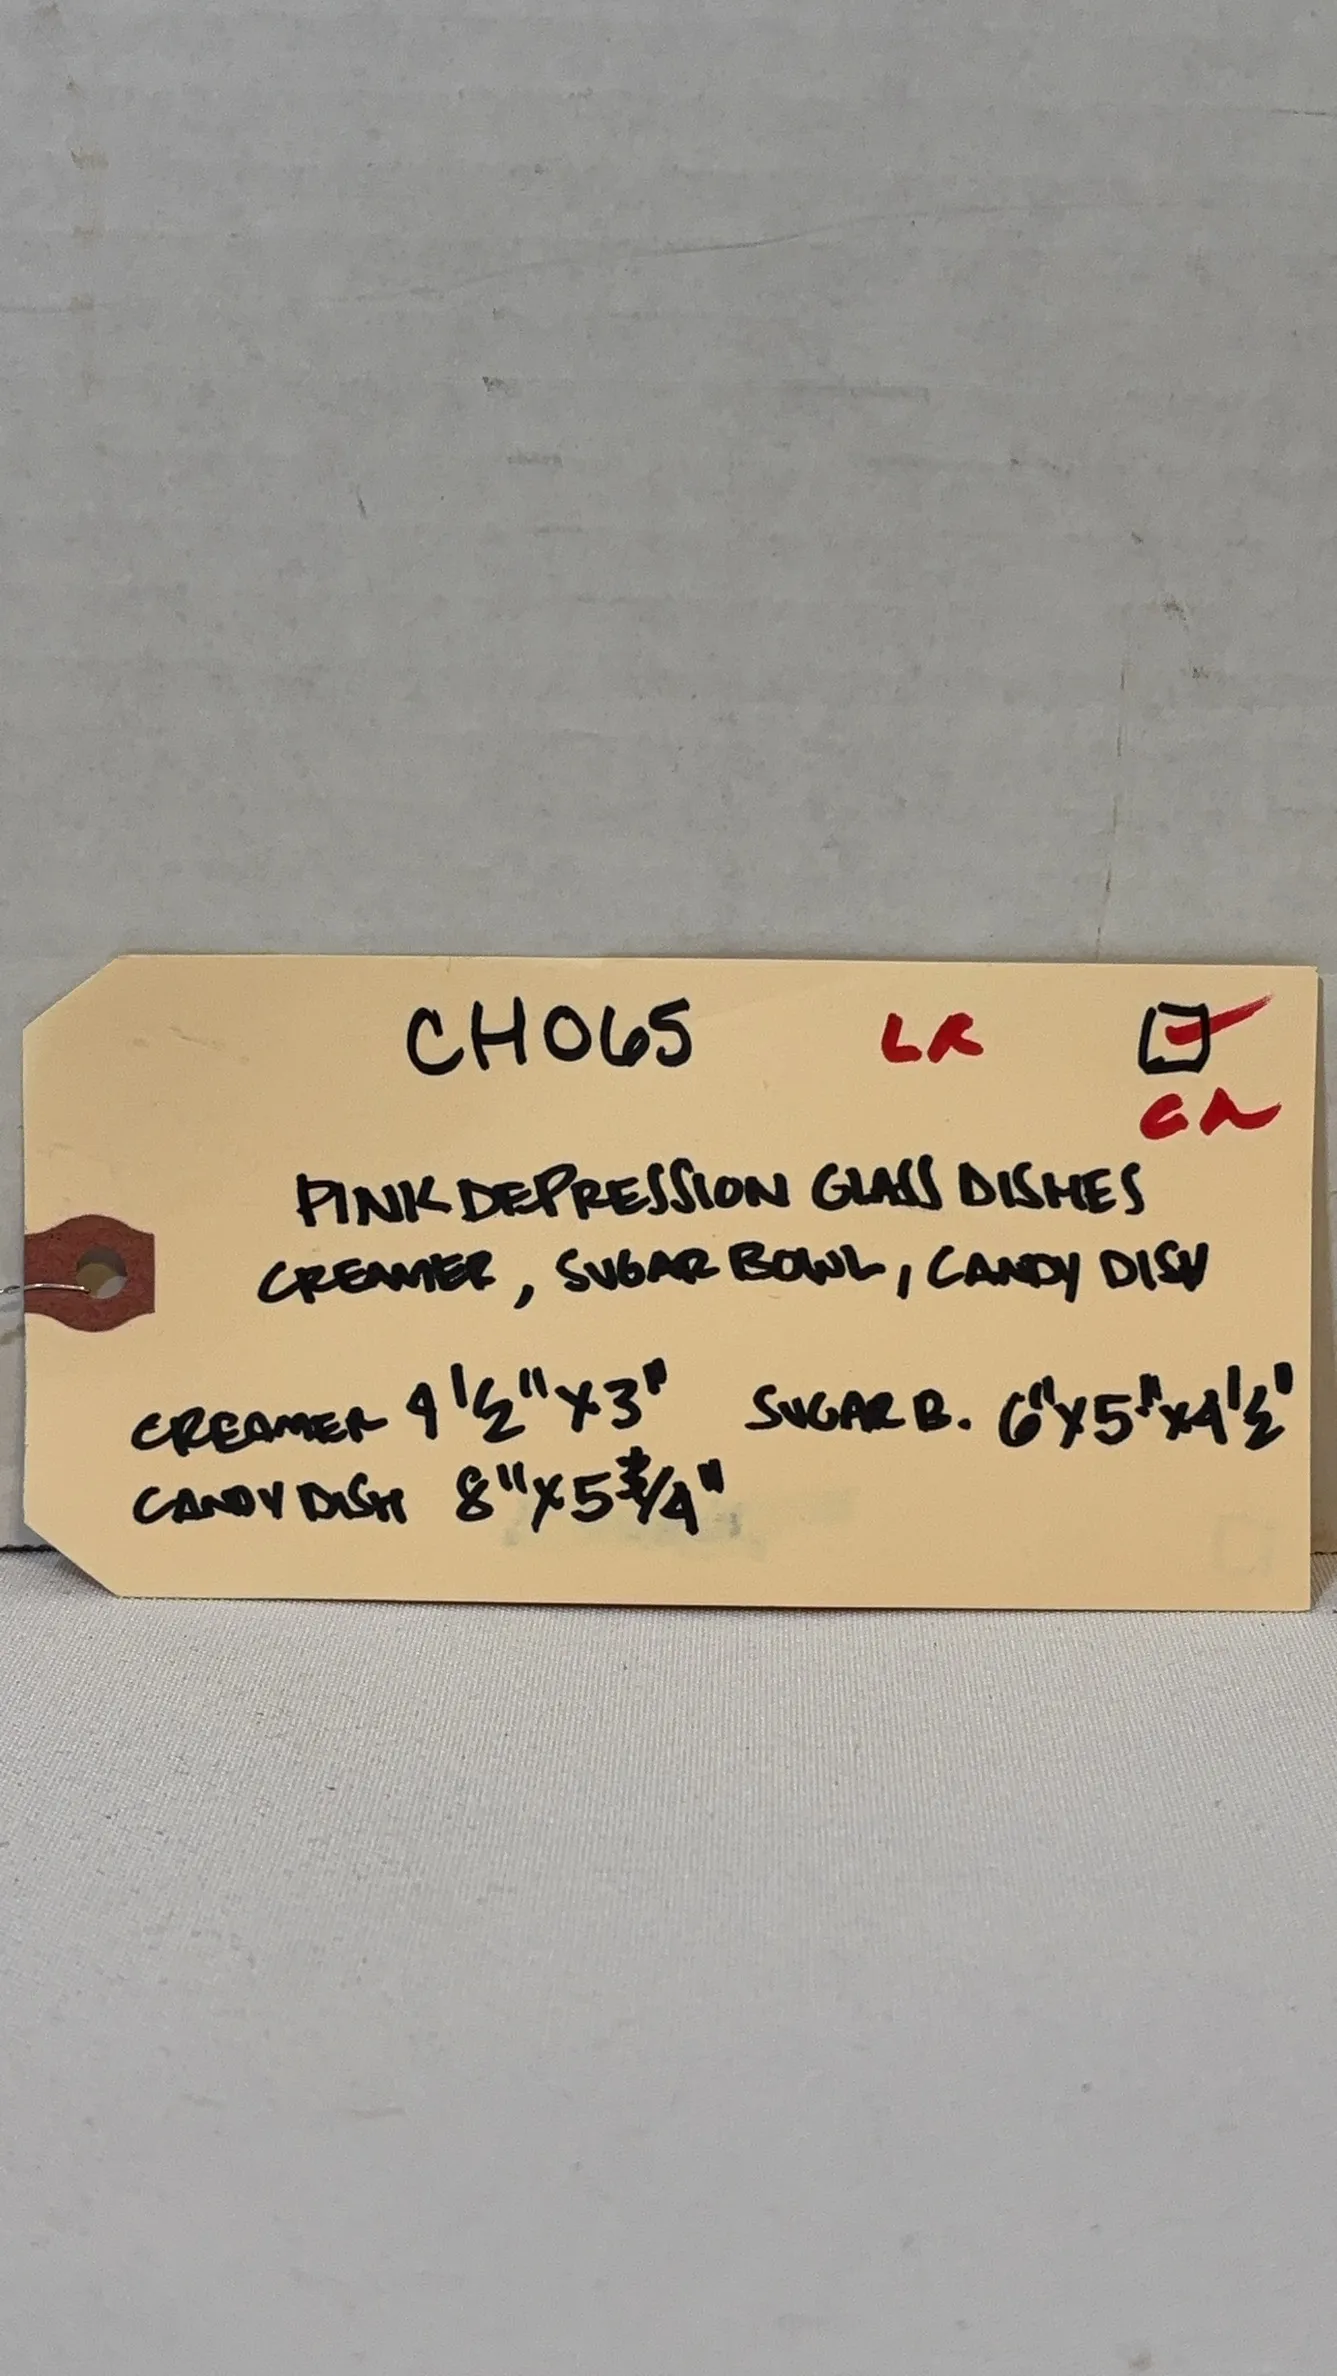 CH065 LR
CA
PINK DEPRESSION GLASS DISHES
CREAMER, SUGAR BOWL, CANDY DISH
CREAMER 4 1/2" X 3" SUGAR B. 6" X 5" X 4 1/2"
CANDY DISH 8" X 5 3/4"